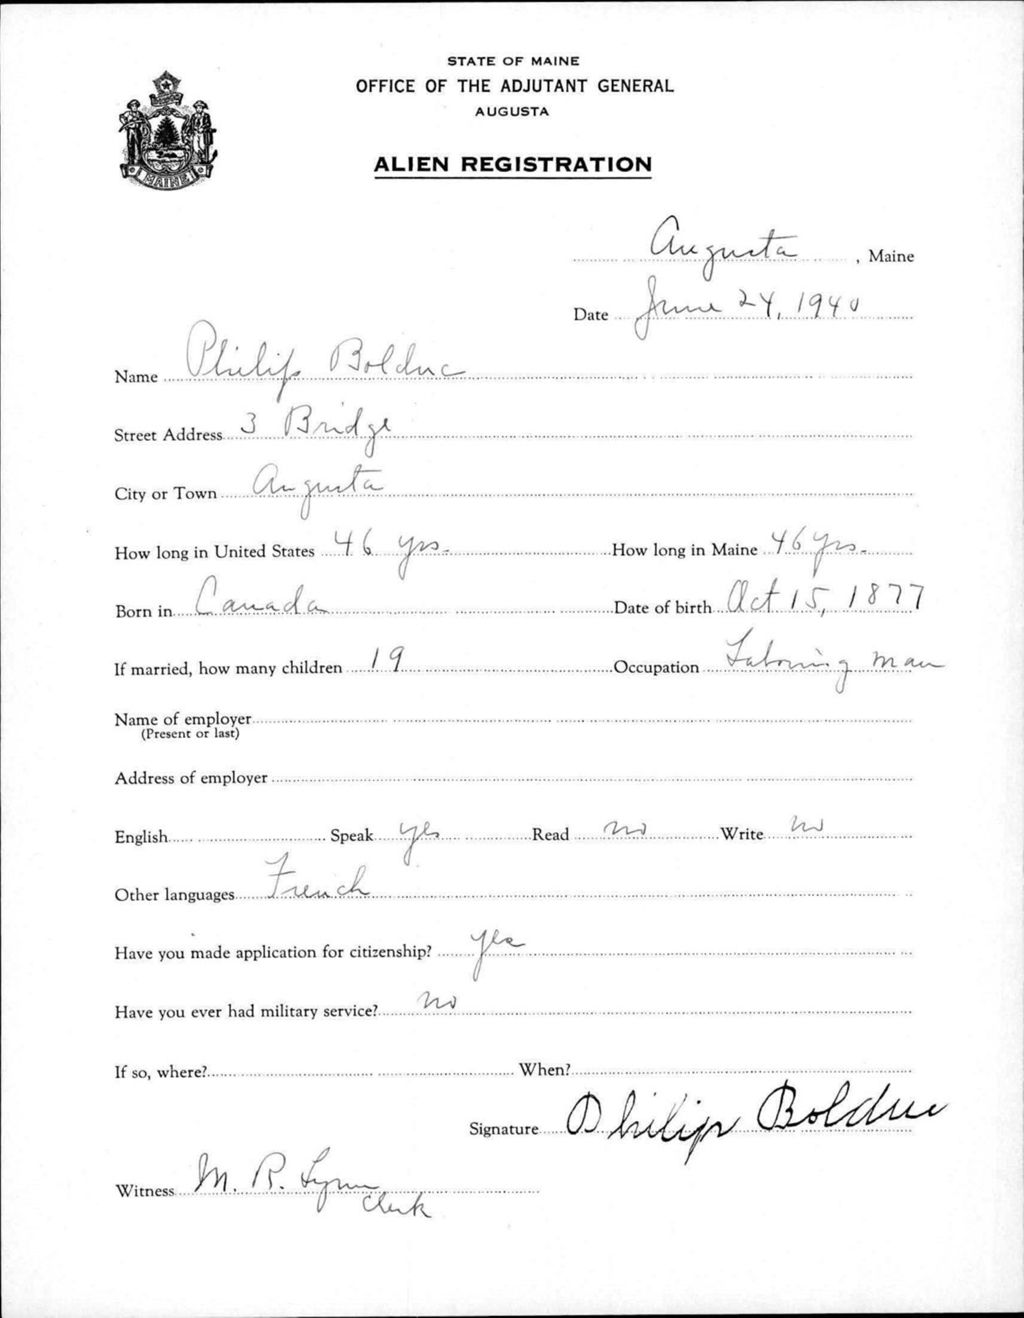 STATE OF MAINE
OFFICE OF THE ADJUTANT GENERAL
AUGUSTA
ALIEN REGISTRATION
MAINE
Augusta, Maine
Date June 24, 1940
Name Philip Bolduc
Street Address 3 Bridge
City or Town Augusta
How long in United States 46 yrs. How long in Maine 46 yrs.
Born in Canada Date of birth Oct 15, 1877
If married, how many children 19 Occupation Laboring man
Name of employer
(Present or last)
Address of employer
English Speak yes Read no Write no
Other languages French
Have you made application for citizenship? yes
Have you ever had military service? no
If so, where? When?
Signature Philip Bolduc
Witness M. R. Lynn
Clerk